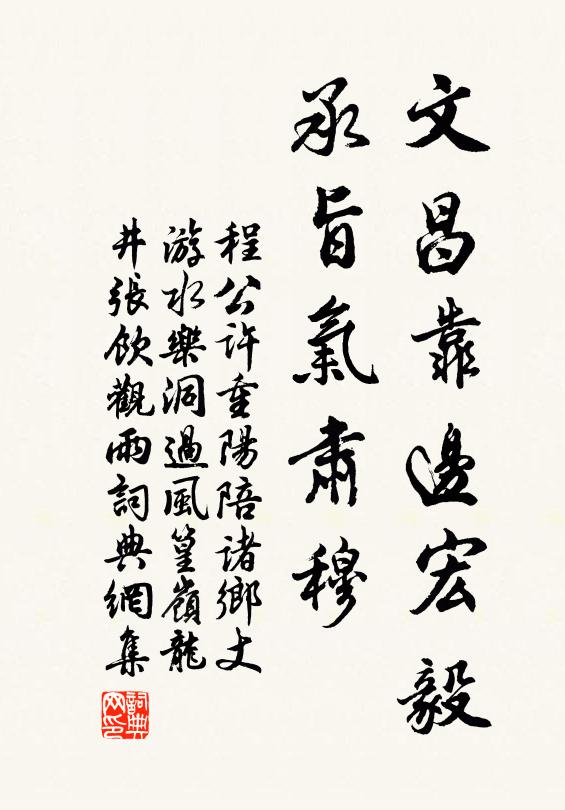 文昌靠邊宏毅
承旨氣肅穆
程公許重陽陪諸鄉丈
游水樂洞過風篁嶺龍
井張飲觀雨詞典網集
詞典网印